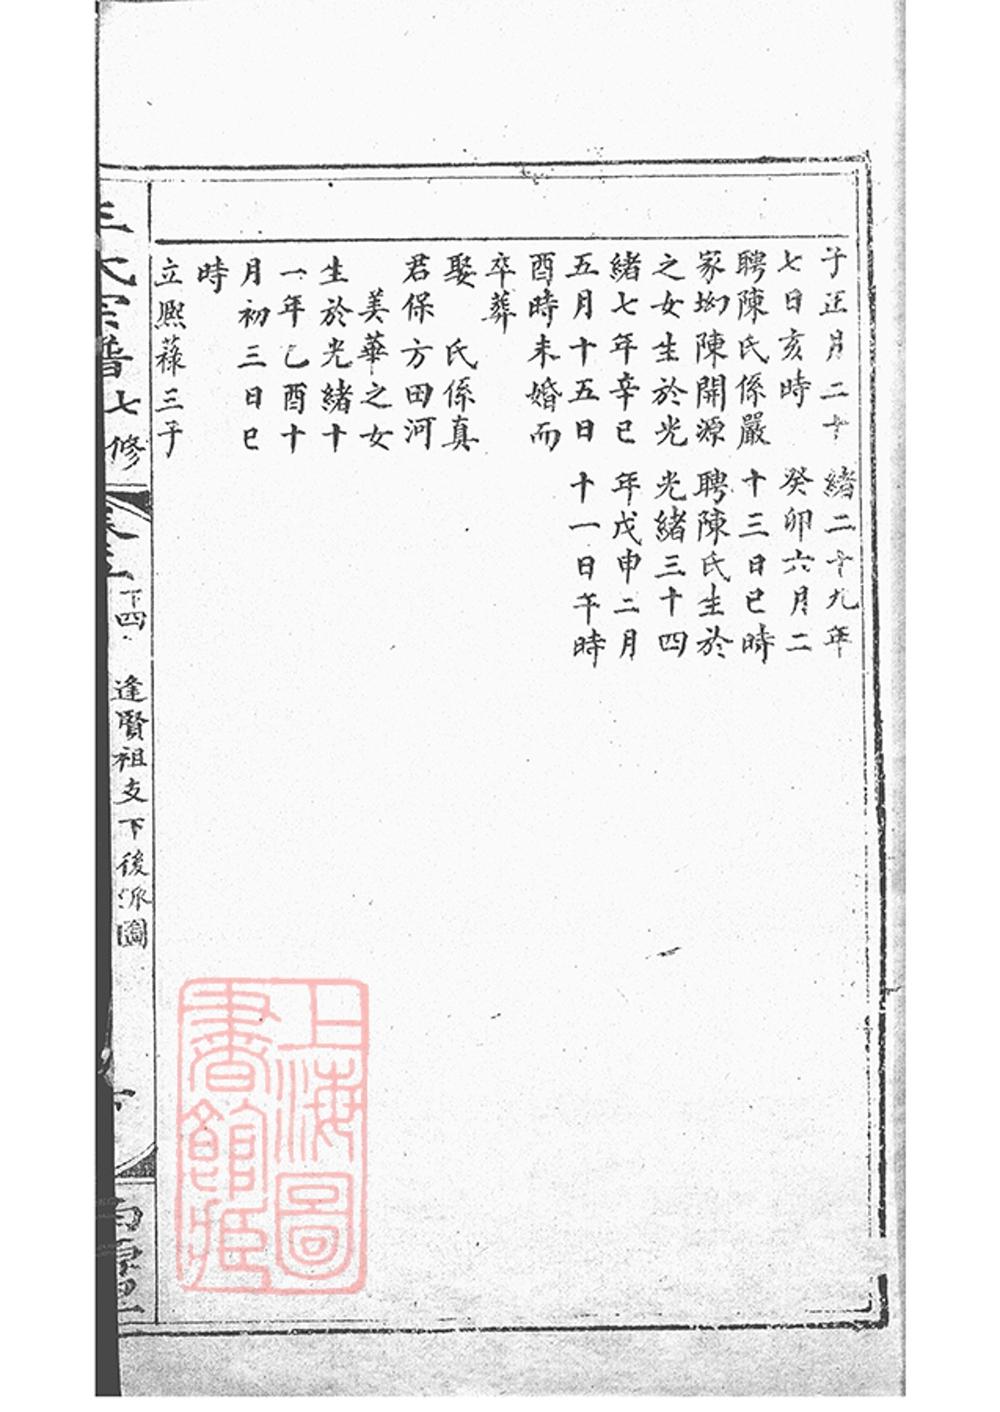 子正月二十
七日亥時
聘陳氏係嚴
家坳陳開源
之女生於光
緒七年辛巳
五月十五日
酉時未婚而
卒葬
娶　氏係真
君保方田河
美華之女
生於光緒十
一年乙酉十
月初三日巳
時
立熙菉三子
緒二十九年
癸卯六月二
十三日巳時
聘陳氏生於
光緒三十四
年戊申二月
十一日午時
王氏宗譜七修
下四
逢賢祖支下後派圖
上海圖
書館藏